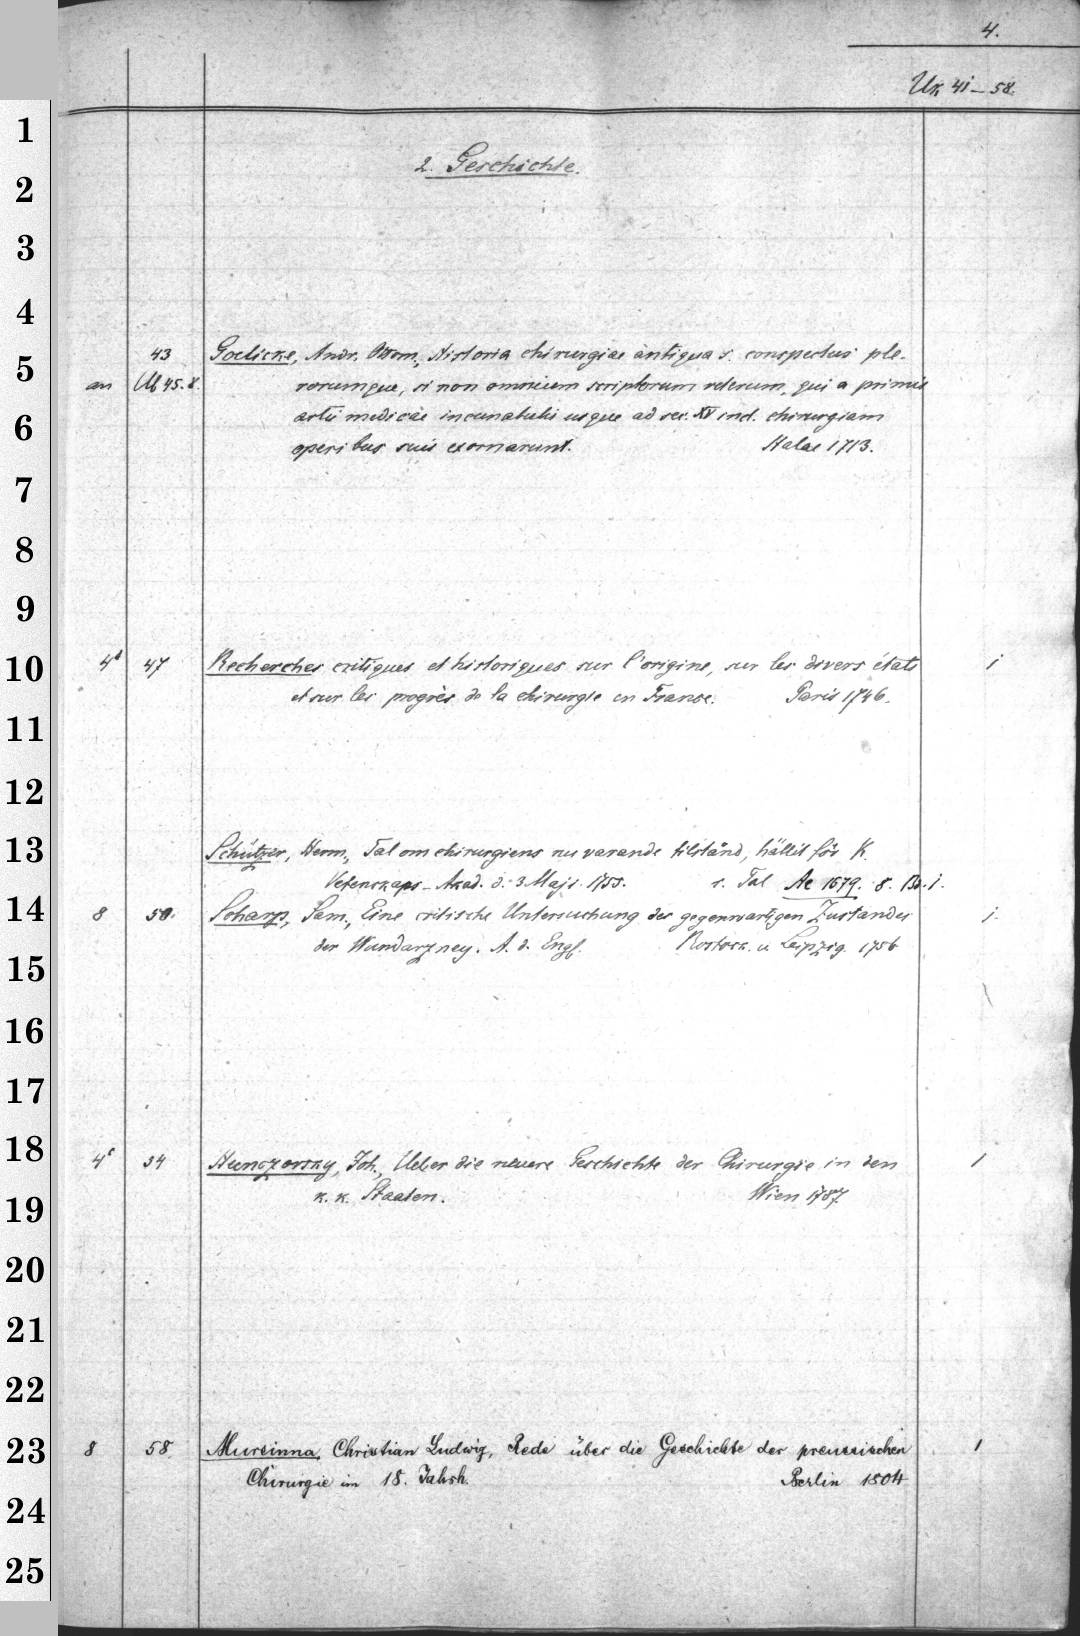 4.
Uk 41-58.
1
2. Geschichte.
2
3
4
43 Goelicke, Andr. Ottom., Historia chirurgiae antiqua s. conspectus ple-
5
an Ub 45.8. rorumque, si non omnium scriptorum veterum, qui a primis
6
artis medicae incunabulis usque ad sec. XV incl. chirurgiam
operibus suis exornarunt. Halae 1713.
7
8
9
10
4d 47 Recherches critiques et historiques sur l'origine, sur les divers états 1
et sur les progrès de la chirurgie en France. Paris 1746.
11
12
13
Schützer, Herm., Tal om chirurgiens nu varande tilstånd, hållit för K.
Vetenskaps-Akad. d. 3 Maji 1755. s. Tal Ae 1679. 8. Bd. 1.
14
8 50. Scharp, Sam., Eine critische Untersuchung des gegenwartigen Zustandes 1.
der Wundarzney. A. d. Engl. Rostock u. Leipzig. 1756
15
16
17
18
4c 54 Hunczovsky, Joh., Ueber die neuere Geschichte der Chirurgie in den 1
k. k. Staaten. Wien 1787.
19
20
21
22
23
8 58 Mursinna, Christian Ludwig, Rede über die Geschichte der preussischen 1
Chirurgie im 18. Jahrh. Berlin 1804
24
25